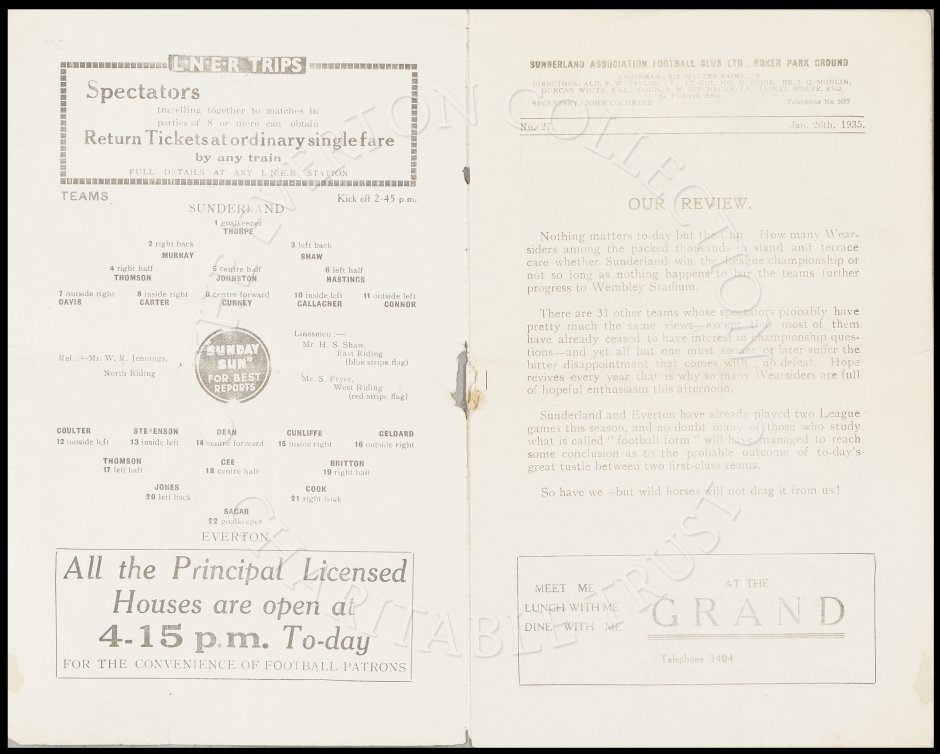 L·N·E·R TRIPS
Spectators
travelling together to matches in
parties of 8 or more can obtain
Return Tickets at ordinary single fare
by any train
FULL DETAILS AT ANY L.N.E.R. STATION
TEAMS
Kick off 2-45 p.m.
SUNDERLAND
1 goalkeeper
THORPE
2 right back 3 left back
MURRAY SHAW
4 right half 5 centre half 6 left half
THOMSON JOHNSTON HASTINGS
7 outside right 8 inside right 9 centre forward 10 inside left 11 outside left
DAVIS CARTER GURNEY GALLACHER CONNOR
Ref.:—Mr. W. R. Jennings,
North Riding
"SUNDAY
SUN"
FOR BEST
REPORTS
Linesmen :—
Mr. H. S. Shaw,
East Riding
(blue stripe flag)
Mr. S. Fryer,
West Riding
(red stripe flag)
COULTER STEVENSON DEAN CUNLIFFE GELDARD
12 outside left 13 inside left 14 centre forward 15 inside right 16 outside right
THOMSON GEE BRITTON
17 left half 18 centre half 19 right half
JONES COOK
20 left back 21 right back
SAGAR
22 goalkeeper
EVERTON
All the Principal Licensed
Houses are open at
4-15 p.m. To-day
FOR THE CONVENIENCE OF FOOTBALL PATRONS
SUNDERLAND ASSOCIATION FOOTBALL CLUB LTD., ROKER PARK GROUND
CHAIRMAN: SIR WALTER RAINE, J.P.
DIRECTORS: ALD. F. W. TAYLOR, J.P., LT-COL. JOS. M. PRIOR, DR. J. G. MODLIN,
DUNCAN WHITE, ESQ., COUN. E. W. DITCHBURN, J.P., LIONEL WOLFE, ESQ.
SECRETARY: JOHN COCHRANE Telephone No.
No. 27. Jan. 26th, 1935.
OUR REVIEW.
Nothing matters to-day but the Cup. How many Wear-
siders among the packed thousands in stand and terrace
care whether Sunderland win the League championship or
not so long as nothing happens to bar the teams further
progress to Wembley Stadium.
There are 31 other teams whose spectators probably have
pretty much the same views—except that most of them
have already ceased to have interest in championship ques-
tions—and yet all but one must sooner or later suffer the
bitter disappointment that comes with cup defeat. Hope
revives every year that is why so many Wearsiders are full
of hopeful enthusiasm this afternoon.
Sunderland and Everton have already played two League
games this season, and no doubt many of those who study
what is called "football form" will have managed to reach
some conclusion as to the probable outcome of to-day's
great tustle between two first-class teams.
So have we—but wild horses will not drag it from us!
MEET ME
LUNCH WITH ME
DINE WITH ME
AT THE
GRAND
Telephone 5404
THE EVERTON COLLECTION
CHARITABLE TRUST